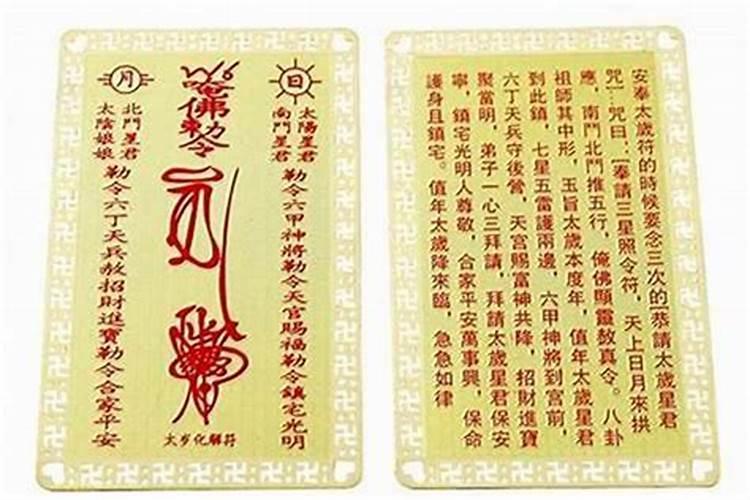 日
太陽星君
南鬥星君
勒令六甲神將勒令天官賜福勒令鎮宅光明
唵佛勅令
太岁化解符
月
北鬥星君
太陰娘娘
勒令六丁天兵敖招財進寶勒令合家平安
安奉太歲符的時候要念三次的[恭請太歲星君
咒]...咒曰:[奉請三星照令符，天上日月來拱
應，南鬥北鬥推五行，俺佛顯靈敖真令。八卦
祖師其中形，玉旨太歲本度年，值年太歲星君
到此鎮，七星五雷護兩邊，六甲神將到宮前，
六丁天兵守後營，天宮賜富神共降，招財進寶
聚當明，弟子一心三拜請，拜請太歲星君保安
寧，鎮宅光明人尊敬，合家平安萬事興，保命
護身且鎮宅。值年太歲降來臨，急急如律